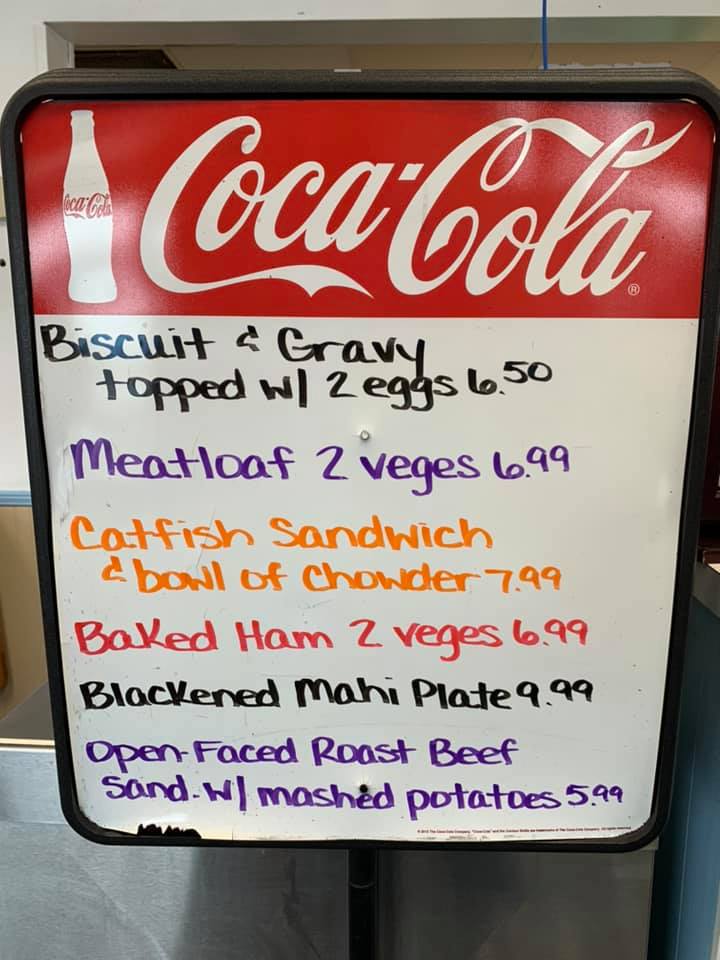 Coca-Cola
Coca-Cola
®
Biscuit & Gravy
topped w/ 2 eggs 6.50
Meatloaf 2 veges 6.99
Catfish Sandwich
& bowl of Chowder 7.99
Baked Ham 2 veges 6.99
Blackened Mahi Plate 9.99
Open-Faced Roast Beef
Sand. w/ mashed potatoes 5.99